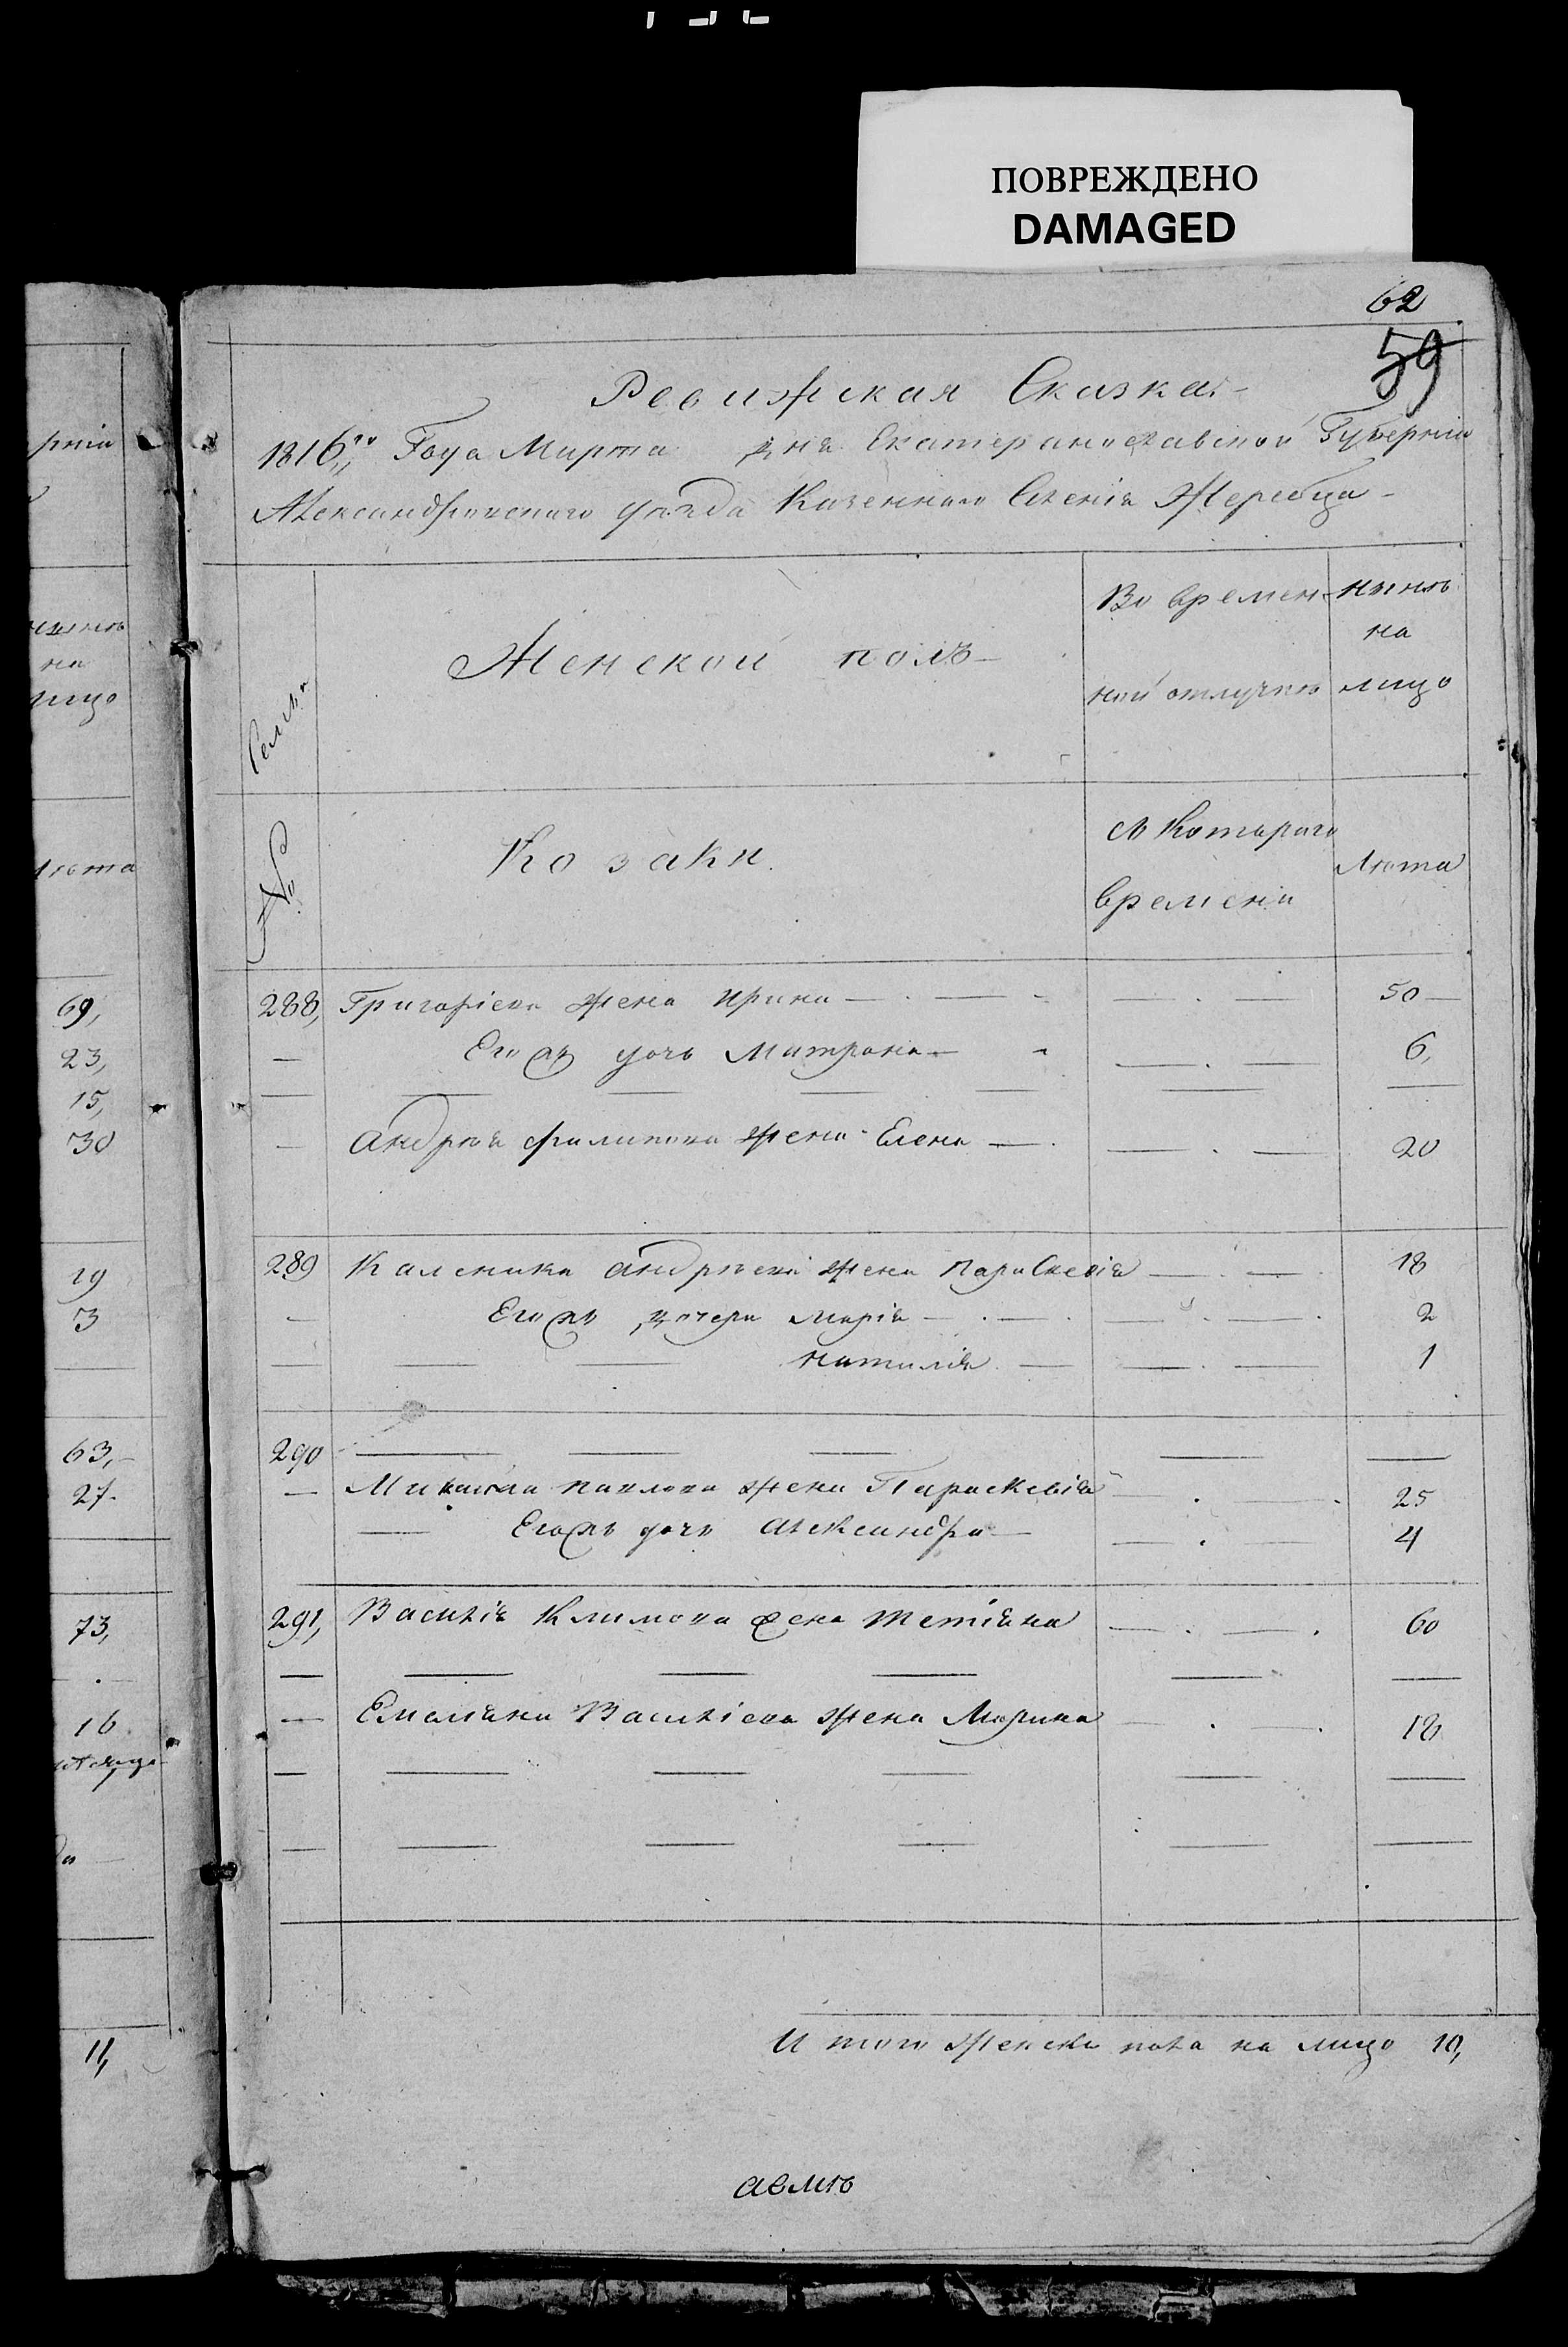 ПОВРЕЖДЕНО
DAMAGED
62
59
Ревижская Сказка
1816го Года Марта дня Екатеринославской Губернии
Александровского уѣзда Казенного Селенія Жеребца
Семьи
Женской полъ
Во времен-
ной отлучкѣ
нынѣ
на
лицо
№
Козаки
съ Котораго
времени
Лѣта
288, Григоріева жена Ирина — 50
— Егожъ дочь Матрона — 6,
— Андрѣя Филипова жена Елена — 20
289 Каленика Андрѣева жена Параскевія — 18
— Егожъ дочери Марія — 2
— Наталія — 1
290
— Михайла Павлова жена Параскевія — 25
— Егожъ дочь Александра — 4
291, Василія Климова жена Тетіяна — 60
— Емеліана Василіева жена Марина — 18
И того женска пола на лицо 10,
рніи
нынѣ
на
лицо
лѣта
69,
23,
15,
30
19
3
63,
27
73,
16
11,